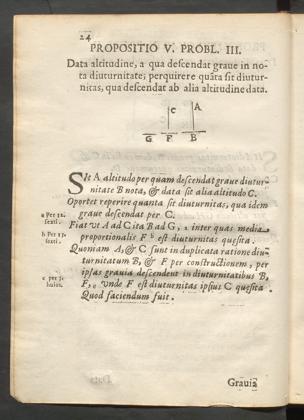 24
PROPOSITIO V. PROBL. III.
Data altitudine, a qua descendat graue in no-
ta diuturnitate; perquirere quãta sit diutur-
nitas, qua descendat ab alia altitudine data.
C A
G F B
Sit A altitudo per quam descendat graue diutur-
nitate B nota, & data sit alia altitudo C.
Oportet reperire quanta sit diuturnitas, qua idem
graue descendat per C.
a Per 12.
sexti.
Fiat vt A ad C ita B ad G, a inter quas media
b Per 13.
sexti.
proportionalis F b est diuturnitas quesita.
Quoniam A, & C sunt in duplicata ratione diu-
turnitatum B, & F per constructionem, per
c per 3.
huius.
ipsas grauia descendent in diuturnitatibus B,
F, c vnde F est diuturnitas ipsius C quesita
Quod faciendum fuit.
Grauia